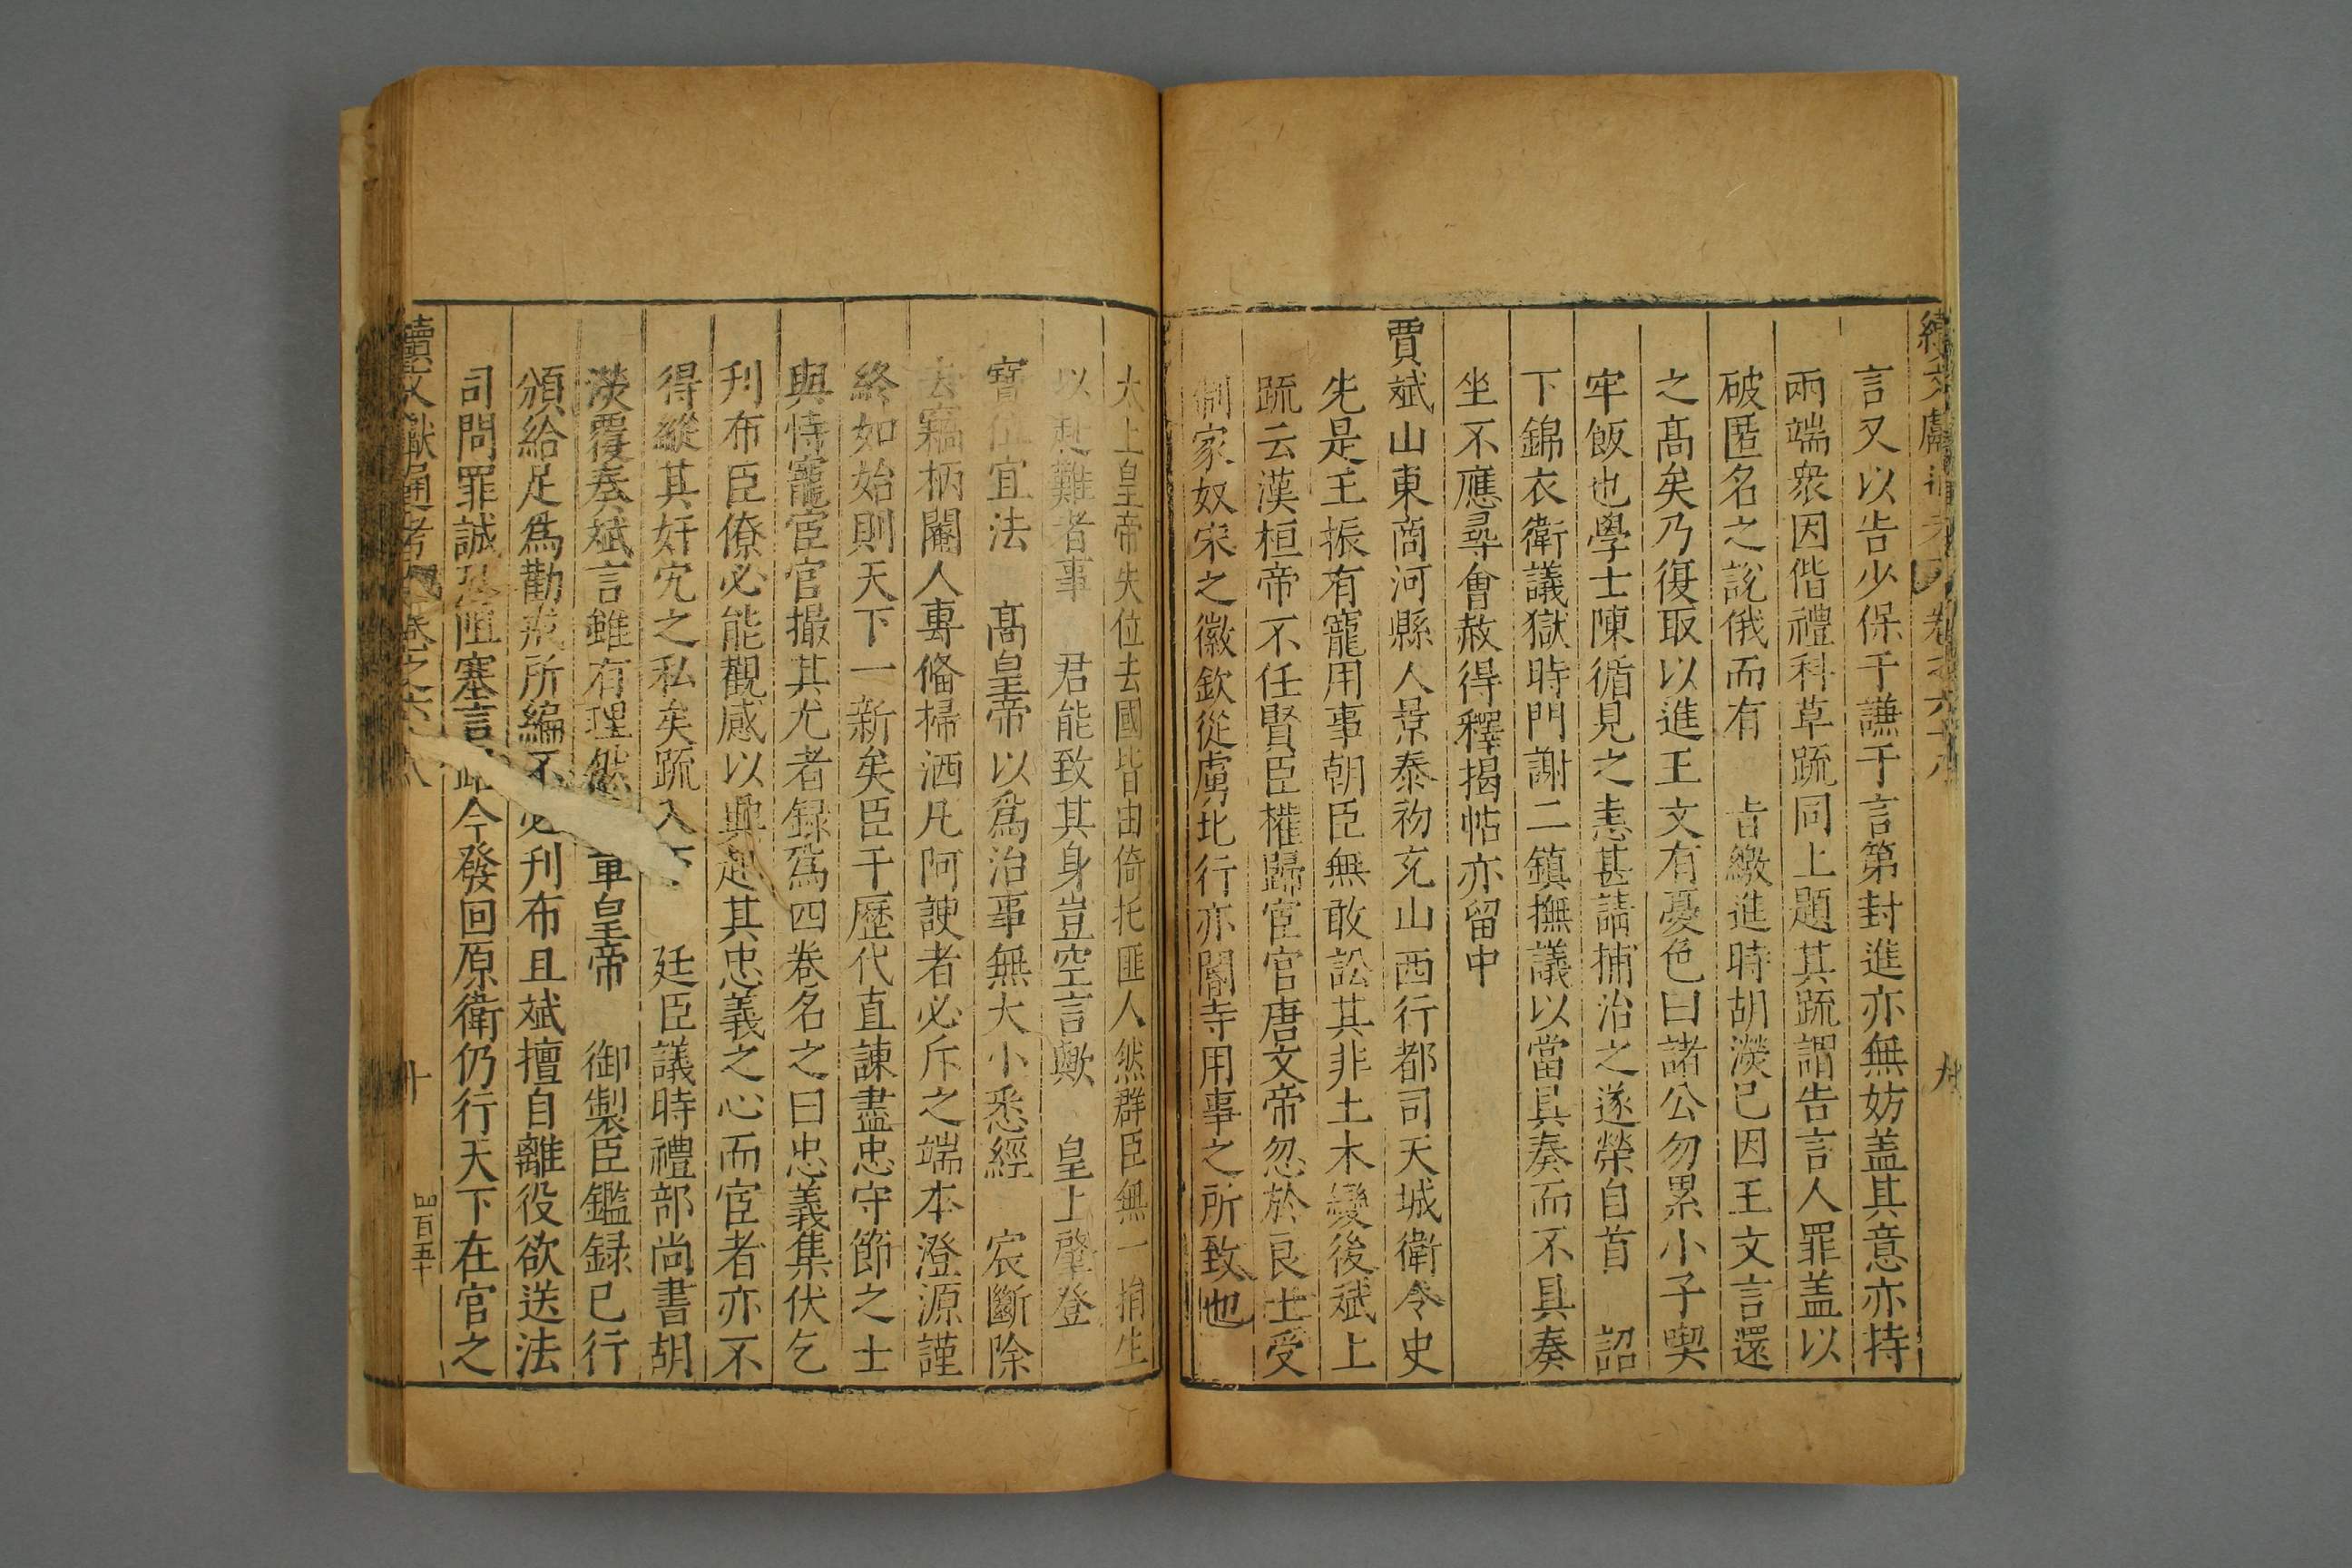 續文獻通考 卷之六十八 九
言又以告少保于謙于言第封進亦無妨盖其意亦持
兩端衆因偕禮科草疏同上題其疏謂告言人罪盖以
破匿名之說俄而有 旨繳進時胡濙已因王文言還
之髙矣乃復取以進王文有憂色曰諸公勿累小子喫
牢飯也學士陳循見之恚甚請捕治之遂榮自首 詔
下錦衣衛議獄時門謝二鎮撫議以當具奏而不具奏
坐不應尋會赦得釋揭帖亦留中
賈斌山東商河縣人景泰初充山西行都司天城衛令史
先是王振有寵用事朝臣無敢訟其非土木變後斌上
疏云漢桓帝不任賢臣權歸宦官唐文帝忽於良士受
制家奴宋之徽欽從虜北行亦閽寺用事之所致也
太上皇帝失位去國皆由倚托匪人然群臣無一捐生
以赴難者事 君能致其身豈空言歟 皇上肇登
寶位宜法 髙皇帝以爲治事無大小悉經 宸斷除
去竊柄閹人專俻掃洒凡阿諛者必斥之端本澄源謹
終如始則天下一新矣臣于歷代直諫盡忠守節之士
與恃寵宦官撮其尤者録爲四卷名之曰忠義集伏乞
刋布臣僚必能觀感以興起其忠義之心而宦者亦不
得縱其奸宄之私矣疏入下 廷臣議時禮部尚書胡
濙覆奏斌言雖有理然 章皇帝 御製臣鑑録已行
頒給足爲勸戒所編不必刋布且斌擅自離役欲送法
司問罪誠恐阻塞言路今發回原衛仍行天下在官之
續文獻通考 卷之六十八 十 四百五十